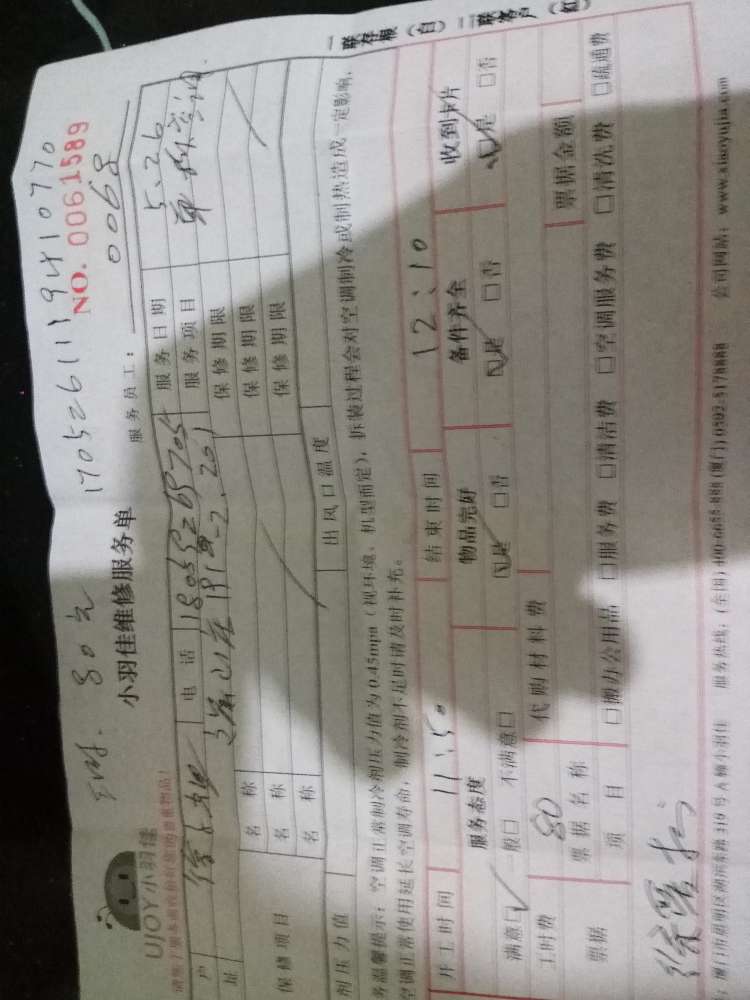 80元 17052611194107 70
UJOY小羽佳
小羽佳维修服务单
NO. 0061589
服务员工： 0068
户 电话 服务日期 5.26
址 服务项目
保修项目 名称 保修期限
名称 保修期限
名称 保修期限
剂压力值 出风口温度
务温馨提示：空调正常制冷剂压力值为0.45mpa（视环境、机型而定），拆装过程会对空调制冷或制热造成一定影响，
空调正常使用延长空调寿命，制冷剂不足时请及时补充。
一联存根（白） 二联客户（红）
开工时间 11:50 结束时间 12:10
服务态度 物品完好 备件齐全 收到卡片
满意☑ 一般□ 不满意□ ☑是 □否 ☑是 □否 ☑是 □否
工时费 80 代购材料费
票据 票据名称 票据金额
项目 □搬办公用品 □服务费 □清洁费 □空调服务费 □清洗费 □疏通费
厦门市思明区湖滨东路319号A幢小羽佳 服务热线：(全国)400-6655-888 (厦门)0592-5178888 公司网站：www.xiaoyujia.com